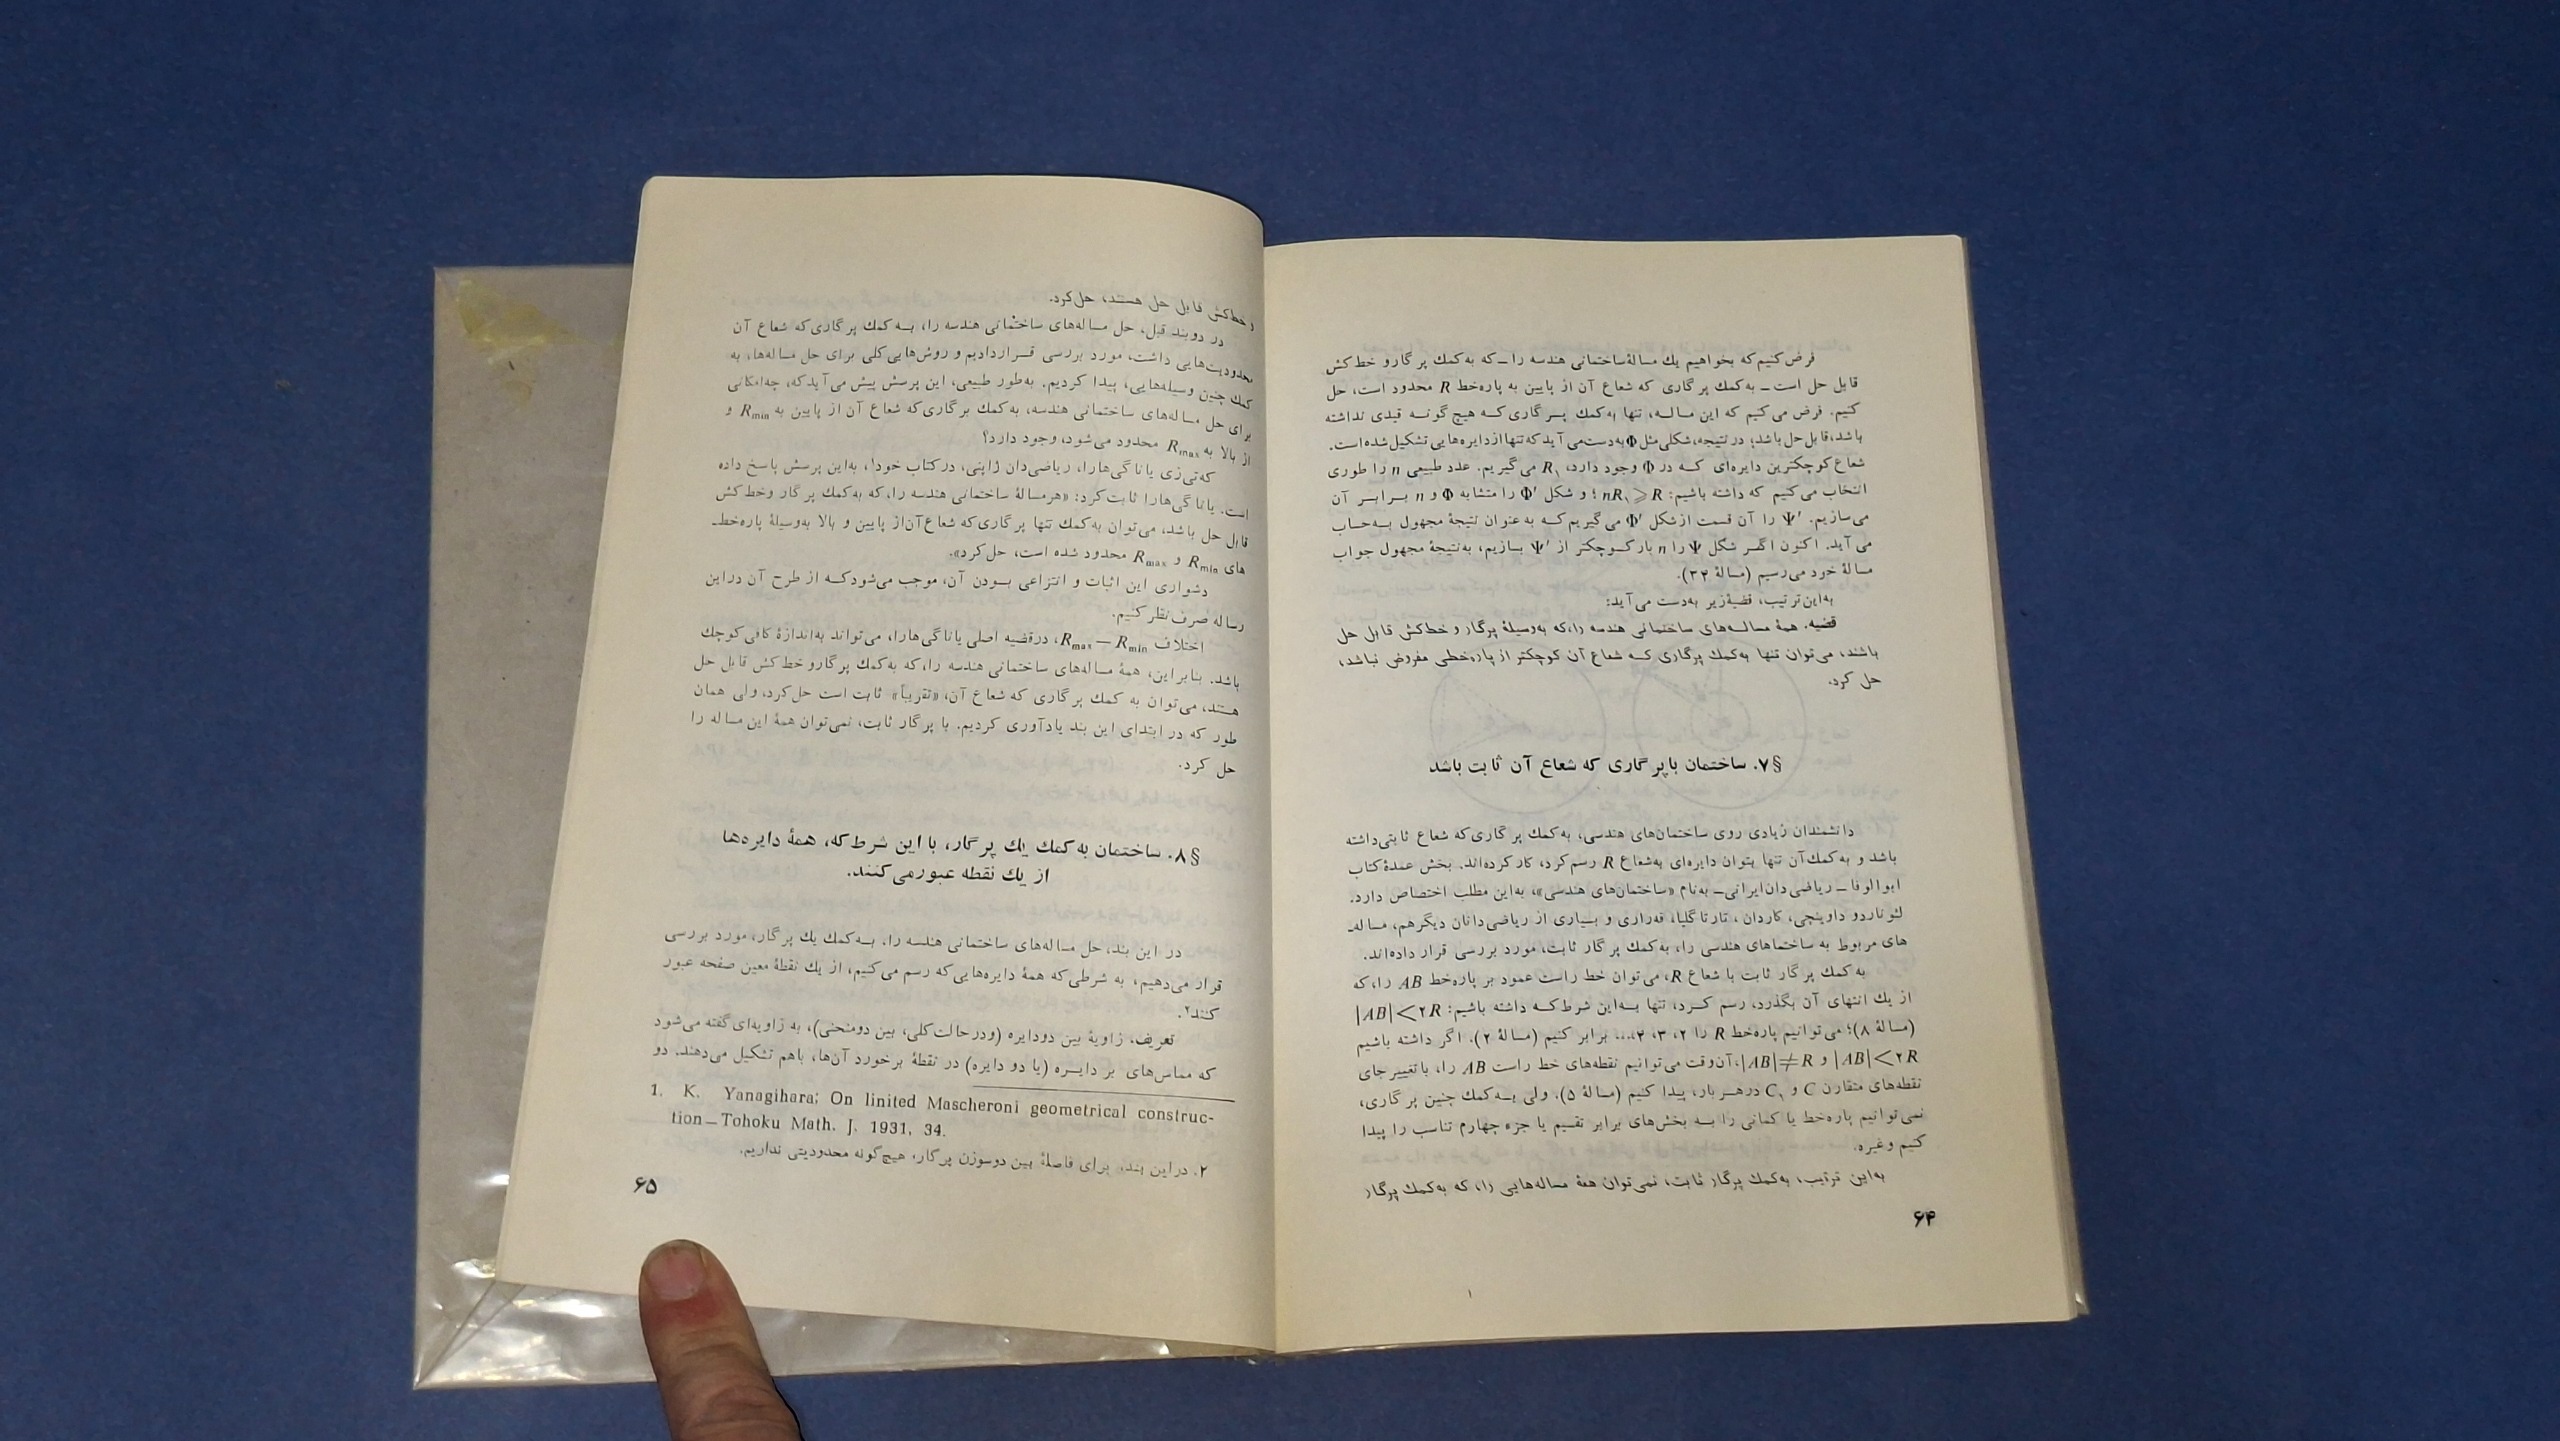 فرض کنیم که بخواهیم یك مسالهٔ ساختمانی هندسه را ــ که به کمك پرگار و خط کش
قابل حل است ــ به کمك پرگاری که شعاع آن از پایین به پاره خط R محدود است، حل
کنیم. فرض می کنیم که این مساله، تنها به کمك پرگاری که هیچ گونه قیدی نداشته
باشد، قابل حل باشد؛ در نتیجه، شکلی مثل Φ به دست می آید که تنها از دایره هایی تشکیل شده است.
شعاع کوچکترین دایره ای که در Φ وجود دارد، R۱ می گیریم. عدد طبیعی n را طوری
انتخاب می کنیم که داشته باشیم: nR۱ ⩾ R ؛ و شکل Φ′ را متشابه Φ و n برابر آن
می سازیم. Ψ′ را آن قسمت از شکل Φ′ می گیریم که به عنوان نتیجهٔ مجهول به حساب
می آید. اکنون اگر شکل Ψ را n بار کوچکتر از Ψ′ بسازیم، به نتیجهٔ مجهول جواب
مسالهٔ خود می رسیم (مسالهٔ ۳۴).
به این ترتیب، قضیهٔ زیر به دست می آید:
قضیه. همهٔ مساله های ساختمانی هندسه را، که به وسیلهٔ پرگار و خط کش قابل حل
باشند، می توان تنها به کمك پرگاری که شعاع آن کوچکتر از پاره خطی مفروض نباشد،
حل کرد.
§۷. ساختمان با پرگاری که شعاع آن ثابت باشد
دانشمندان زیادی روی ساختمان های هندسی، به کمك پرگاری که شعاع ثابتی داشته
باشد و به کمك آن تنها بتوان دایره ای به شعاع R رسم کرد، کار کرده اند. بخش عمدهٔ کتاب
ابوالوفا ــ ریاضی دان ایرانی ــ به نام «ساختمان های هندسی»، به این مطلب اختصاص دارد.
لئوناردو داوینچی، کاردان، تارتاگلیا، فه راری و بسیاری از ریاضی دانان دیگر هم، مساله ـ
های مربوط به ساختماهای هندسی را، به کمك پرگار ثابت، مورد بررسی قرار داده اند.
به کمك پرگار ثابت با شعاع R، می توان خط راست عمود بر پاره خط AB را، که
از یك انتهای آن بگذرد، رسم کرد، تنها به این شرط که داشته باشیم: |AB|<۲R
(مسالهٔ ۸)؛ می توانیم پاره خط R را ۲، ۳، ۴،... برابر کنیم (مسالهٔ ۲). اگر داشته باشیم
|AB|<۲R و |AB|≠R، آن وقت می توانیم نقطه های خط راست AB را، با تغییر جای
نقطه های متقارن C و C۱ در هر بار، پیدا کنیم (مسالهٔ ۵). ولی به کمك چنین پرگاری،
نمی توانیم پاره خط یا کمانی را به بخش های برابر تقسیم یا جزء چهارم تناسب را پیدا
کنیم و غیره.
به این ترتیب، به کمك پرگار ثابت، نمی توان همهٔ مساله هایی را، که به کمك پرگار
۶۴
و خط کش قابل حل هستند، حل کرد.
در دو بند قبل، حل مساله های ساختمانی هندسه را، به کمك پرگاری که شعاع آن
محدودیت هایی داشت، مورد بررسی قرار دادیم و روش هایی کلی برای حل مساله ها، به
کمك چنین وسیله هایی، پیدا کردیم. به طور طبیعی، این پرسش پیش می آید که، چه امکانی
برای حل مساله های ساختمانی هندسه، به کمك پرگاری که شعاع آن از پایین به Rmin و
از بالا به Rmax محدود می شود، وجود دارد؟
که تی زی یاناگی هارا، ریاضی دان ژاپنی، در کتاب خود۱، به این پرسش پاسخ داده
است. یاناگی هارا ثابت کرد: «هر مسالهٔ ساختمانی هندسه را، که به کمك پرگار و خط کش
قابل حل باشد، می توان به کمك تنها پرگاری که شعاع آن از پایین و بالا به وسیلهٔ پاره خط ـ
های Rmin و Rmax محدود شده است، حل کرد».
دشواری این اثبات و انتزاعی بودن آن، موجب می شود که از طرح آن در این
رساله صرف نظر کنیم.
اختلاف Rmax − Rmin، در قضیه اصلی یاناگی هارا، می تواند به اندازهٔ کافی کوچك
باشد. بنابراین، همهٔ مساله های ساختمانی هندسه را، که به کمك پرگار و خط کش قابل حل
هستند، می توان به کمك پرگاری که شعاع آن، «تقریباً» ثابت است حل کرد، ولی همان
طور که در ابتدای این بند یادآوری کردیم. با پرگار ثابت، نمی توان همهٔ این مساله را
حل کرد.
§۸. ساختمان به کمك یك پرگار، با این شرط که، همهٔ دایره ها
از یك نقطه عبور می کنند.
در این بند، حل مساله های ساختمانی هندسه را، به کمك یك پرگار، مورد بررسی
قرار می دهیم، به شرطی که همهٔ دایره هایی که رسم می کنیم، از یك نقطهٔ معین صفحه عبور
کنند۲.
تعریف، زاویهٔ بین دو دایره (و در حالت کلی، بین دو منحنی)، به زاویه ای گفته می شود
که مماس های بر دایره (یا دو دایره) در نقطهٔ برخورد آن ها، با هم تشکیل می دهند. دو
1. K. Yanagihara; On linited Mascheroni geometrical construc-
tion – Tohoku Math. J. 1931, 34.
۲. در این بند، برای فاصلهٔ بین دو سوزن پرگار، هیچ گونه محدودیتی نداریم.
۶۵